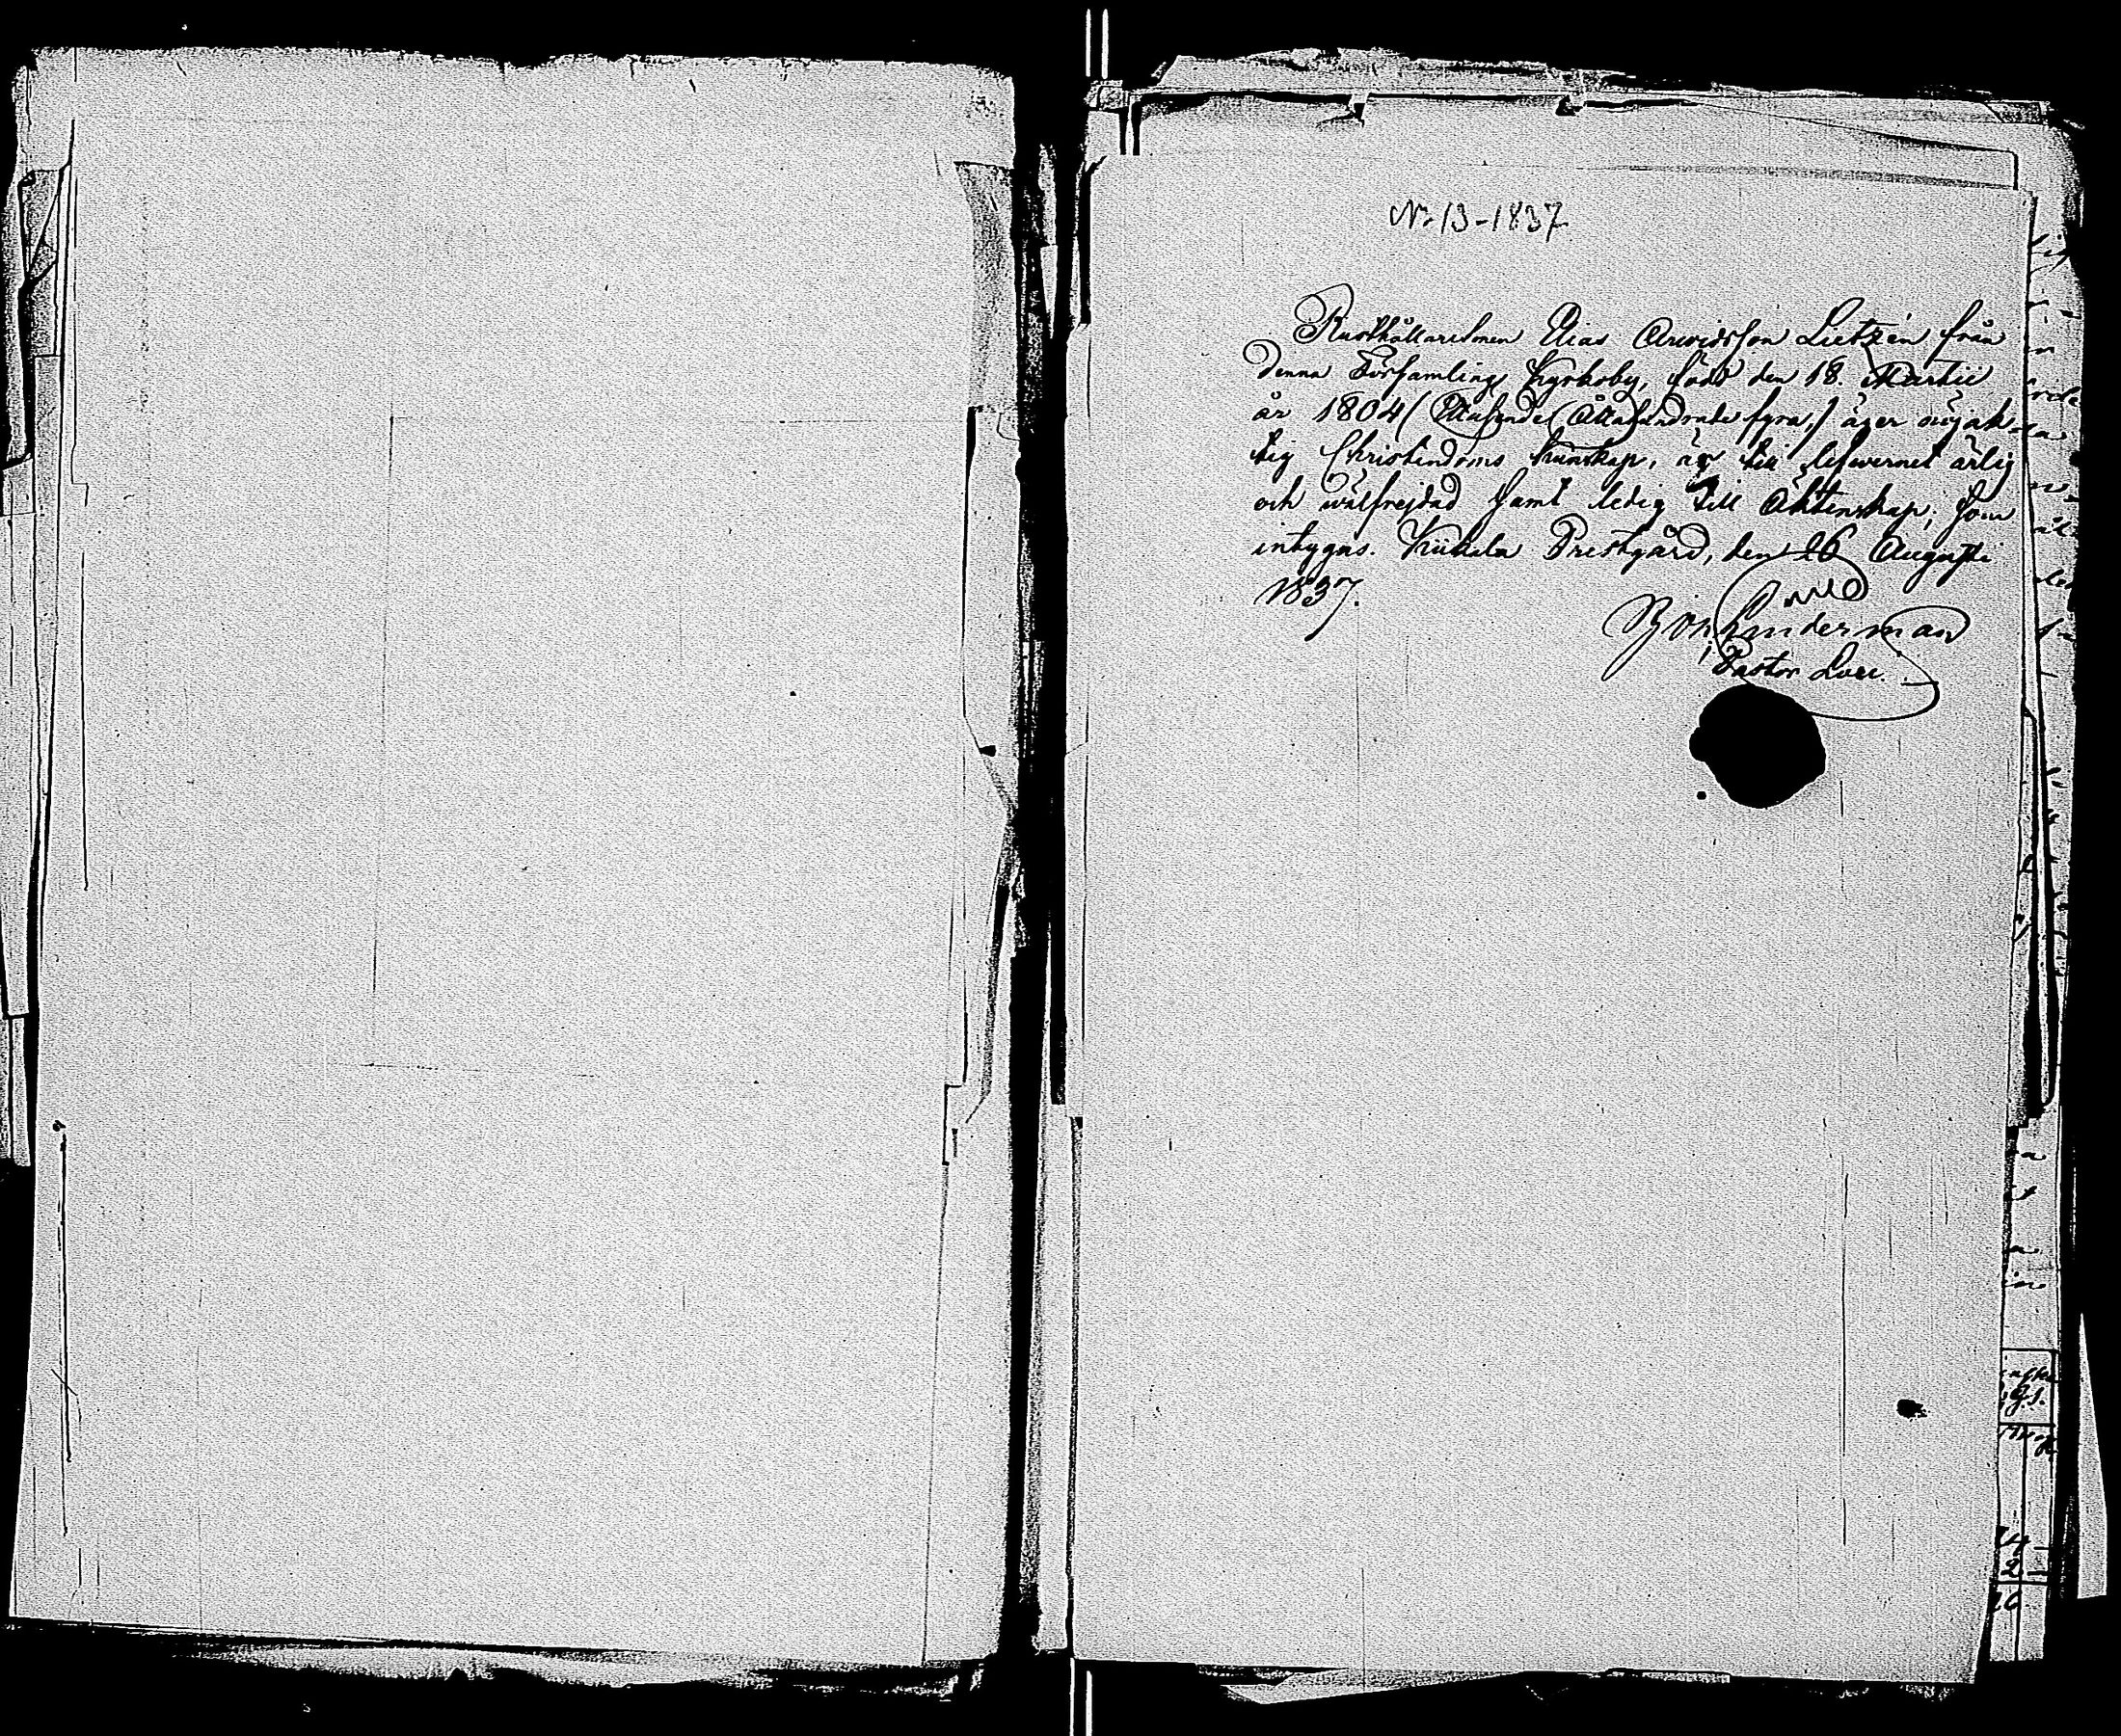 No 13-1837
Rusthållaresonen Elias Arwidsson Lietzén från
denna Församlings Kyrkoby, född den 18. Martii
år 1804 (Ettusende Åttahundrade fyra,) äger nöjak-
tig Christendoms kunskap, är till lefwernet ärlig
och wälfrejdad samt ledig till Äktenskap; som
intygas. Kiikala Prestgård, den 26 Augusti
1837.
Joh. Linderman
Pastor Loci.